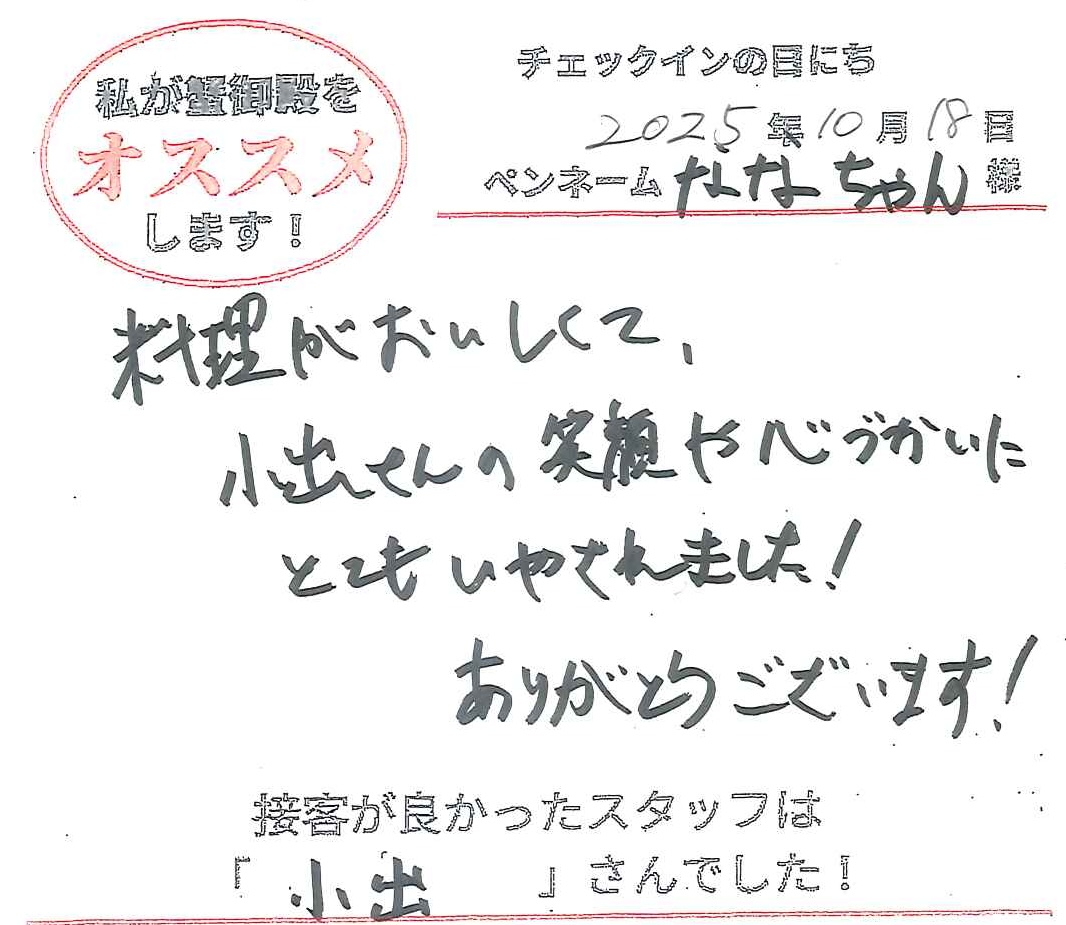 私が蟹御殿を
オススメ
します！
チェックインの日にち
2025年10月18日
ペンネーム ななちゃん 様
料理がおいしくて、
小出さんの笑顔や心づかいに
とてもいやされました！
ありがとうございます！
接客が良かったスタッフは
「小出」さんでした！